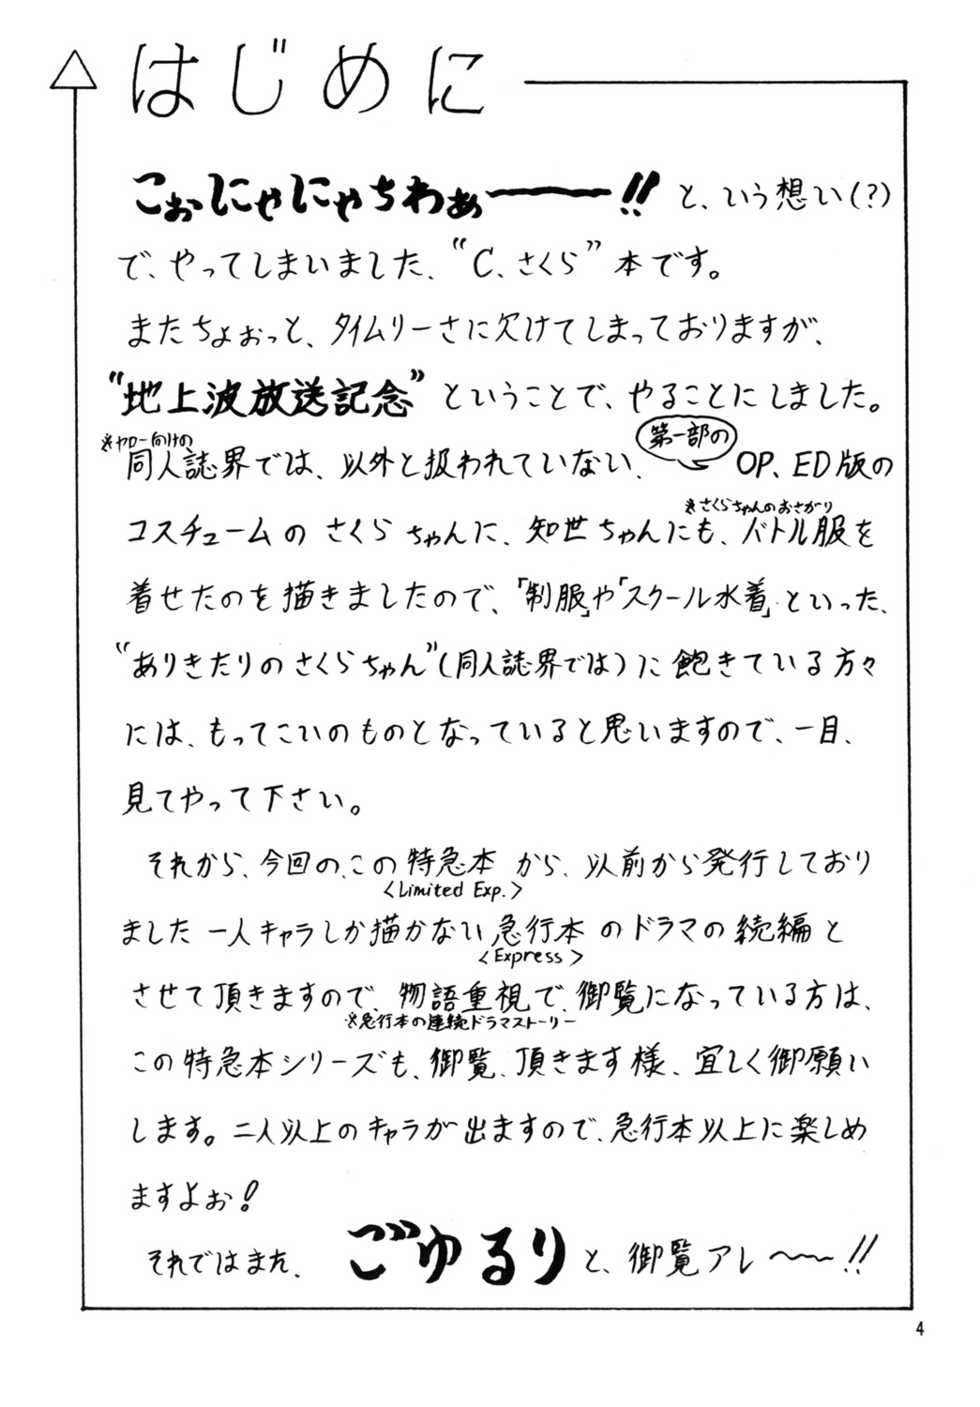 はじめに
こぉにゃにゃちわぁーーー!! と、いう想い(?)
で、やってしまいました、“C、さくら”本です。
またちょぉっと、タイムリーさに欠けてしまっておりますが、
“地上波放送記念”ということで、やることにしました。
※ヤロー向けの
同人誌界では、以外と扱われていない、第一部の OP、ED版の
※さくらちゃんのおさがり
コスチュームのさくらちゃんに、知世ちゃんにも、バトル服を
着せたのを描きましたので、「制服」や「スクール水着」といった、
“ありきたりのさくらちゃん”(同人誌界では)に飽きている方々
には、もってこいのものとなっていると思いますので、一目、
見てやって下さい。
それから、今回の、この特急本から、以前から発行しており
<Limited Exp.>
ました一人キャラしか描かない急行本のドラマの続編と
<Express>
させて頂きますので、物語重視で、御覧になっている方は、
※急行本の連続ドラマストーリー
この特急本シリーズも、御覧、頂きます様、宜しく御願い
します。二人以上のキャラが出ますので、急行本以上に楽しめ
ますよぉ!
それではまた、ごゆるりと、御覧アレ〜〜!!
4